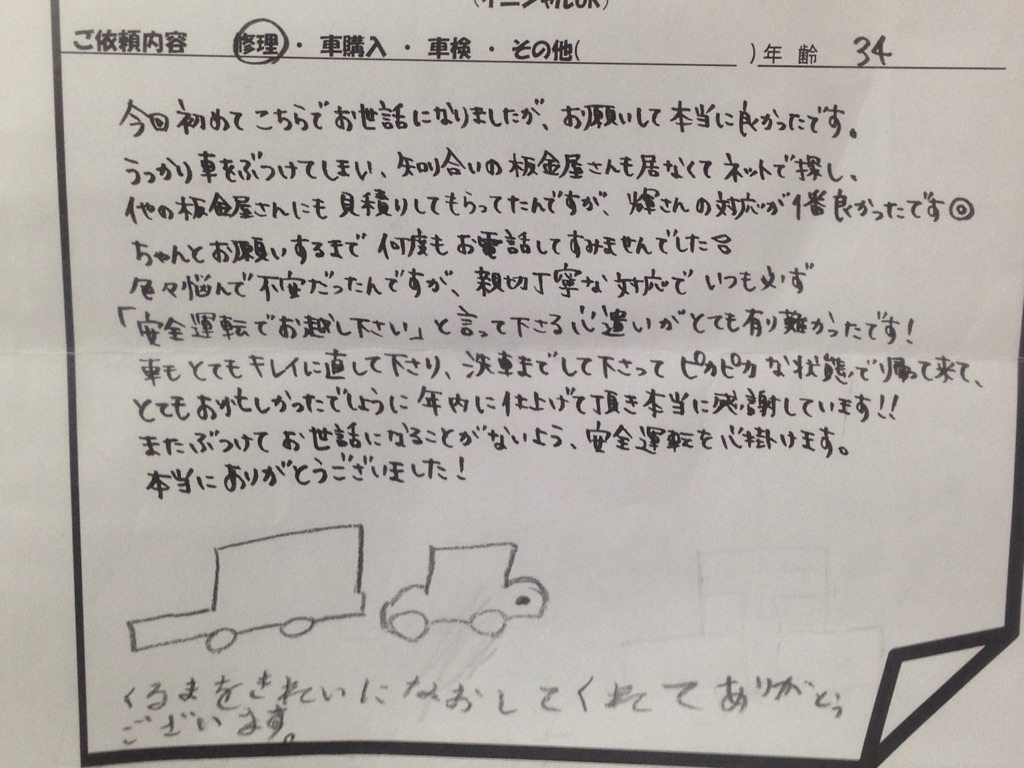 (イニシャルOK)
ご依頼内容 修理・車購入・車検・その他( )年齢 34
今回初めてこちらでお世話になりましたが、お願いして本当に良かったです。
うっかり車をぶつけてしまい、知り合いの板金屋さんも居なくてネットで探し、
他の板金屋さんにも見積りしてもらってたんですが、輝さんの対応が1番良かったです◎
ちゃんとお願いするまで何度もお電話してすみませんでした
色々悩んで不安だったんですが、親切丁寧な対応でいつも必ず
「安全運転でお越し下さい」と言って下さる心遣いがとても有り難かったです!
車もとてもキレイに直して下さり、洗車までして下さってピカピカな状態で帰って来て、
とてもおいそがしかったでしょうに年内に仕上げて頂き本当に感謝しています!!
またぶつけてお世話になることがないよう、安全運転を心掛けます。
本当にありがとうございました!
くるまをきれいになおしてくれてありがとう
ございます。